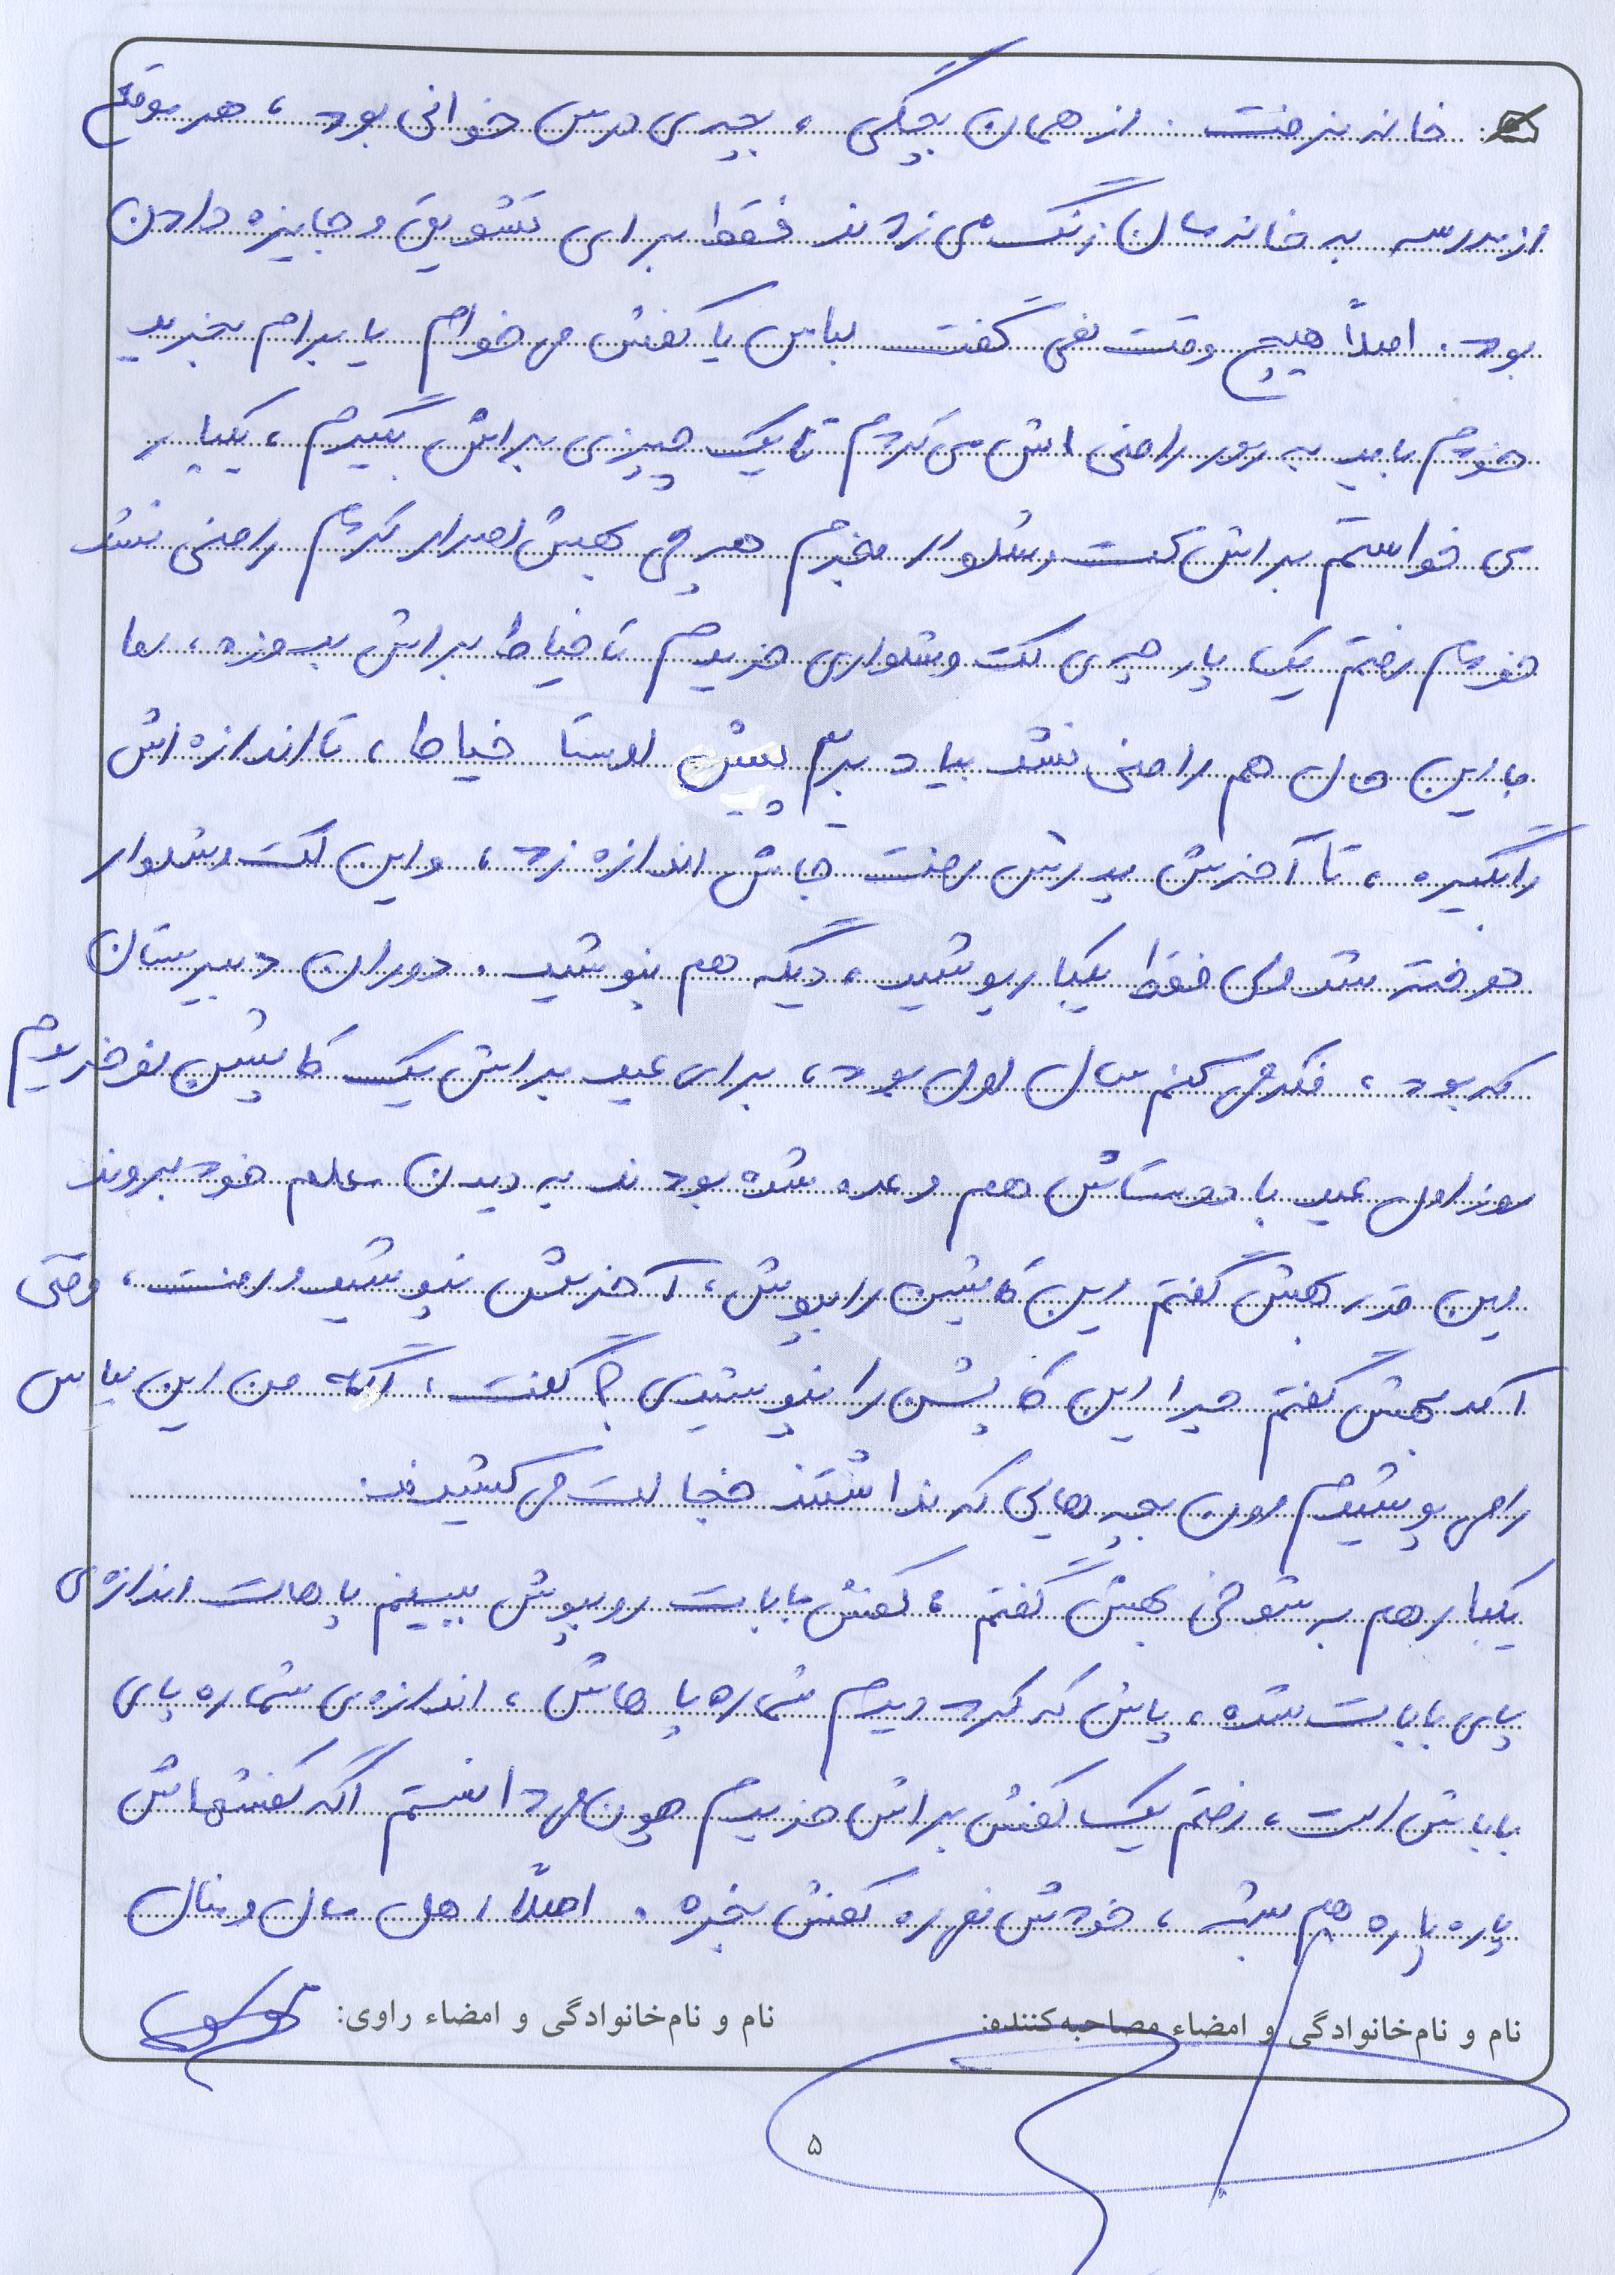 خانه نرفت. از همان بچگی، بچه‌ی درس خوانی بود، هر موقع
از مدرسه به خانه‌مان زنگ می‌زدند فقط برای تشویق و جایزه دادن
بود. اصلاً هیچ وقت نمی‌گفت لباس یا کفش می‌خوام یا برام بخرید
خودم باید به زور راضی‌اش می‌کردم تا یک چیزی براش بگیرم، یکبار
می‌خواستم براش کت و شلوار بخرم هر چی بهش اصرار کردم راضی نشد
خودم رفتم یک پارچه‌ی کت و شلواری خریدم تا خیاط براش بدوزه، اما
با این حال هم راضی نشد بیاد بریم پیش اوستا خیاط، تا اندازه‌اش
را بگیره، تا آخرش پدرش رفت جاش اندازه زد، و این کت و شلوار
دوخته شد ولی فقط یکبار پوشید، دیگه هم نپوشید. دوران دبیرستان
که بود، فکر می‌کنم سال اول بود، برای عید براش یک کاپشن نو خریدم
روز اول عید با دوستاش هم وعده شده بودند به دیدن معلم خود بروند
این قدر بهش گفتم این کاپشن را بپوش، آخرش نپوشید و رفت، وقتی
آمد بهش گفتم چرا این کاپشن را نپوشیدی؟ گفت، اگه من این لباس
را می‌پوشیدم اون بچه‌هایی که نداشتند خجالت می‌کشیدند
یکبار هم به شوخی بهش گفتم، کفش بابات رو بپوش ببینم پاهات اندازه‌ی
پای بابات شده، پاش که کرد دیدم شماره پاهاش، اندازه‌ی شماره پای
باباش است، رفتم یک کفش براش خریدم چون می‌دانستم اگه کفشهاش
پاره پاره هم بشه، خودش نمی‌ره کفش بخره. اصلاً اهل مال و منال
نام و نام‌خانوادگی و امضاء مصاحبه‌کننده: نام و نام‌خانوادگی و امضاء راوی:
۵